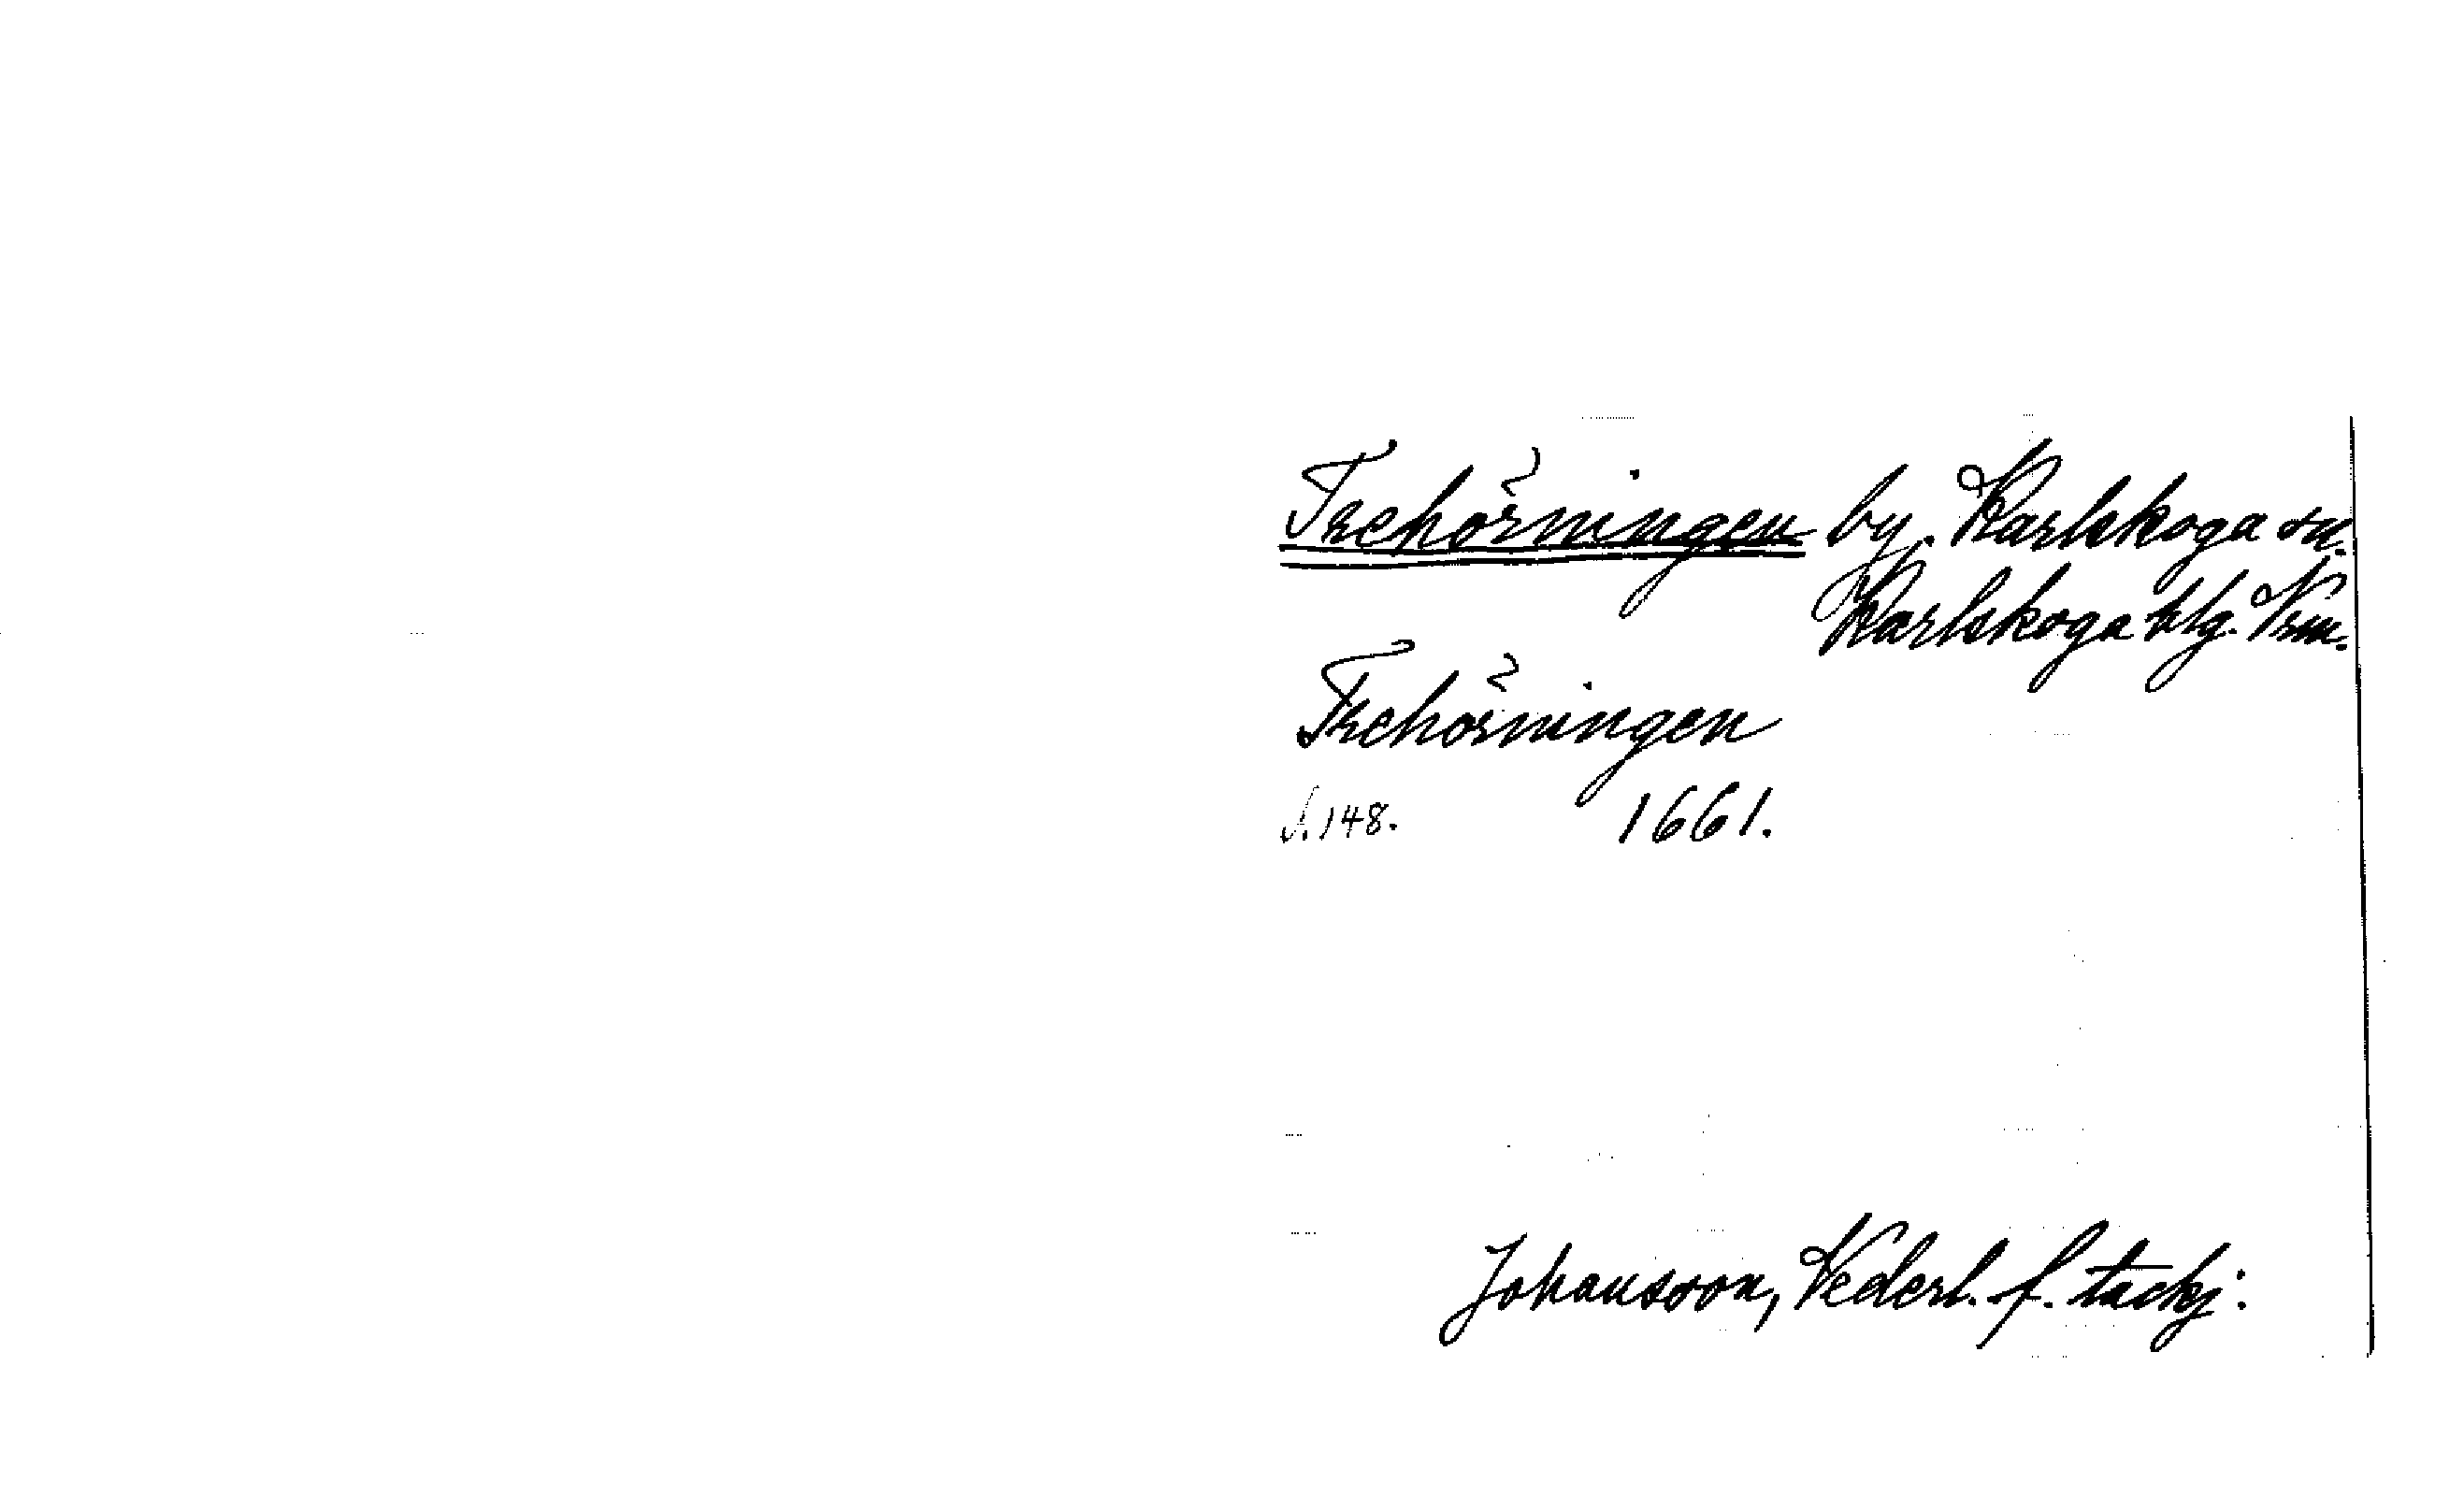 Trehörningen by. Karlskoga sn.
Karlskoga blg. Vrm.
Trehörningen
s. 148. 1661.
Johansson, Vederl. f. tackj: